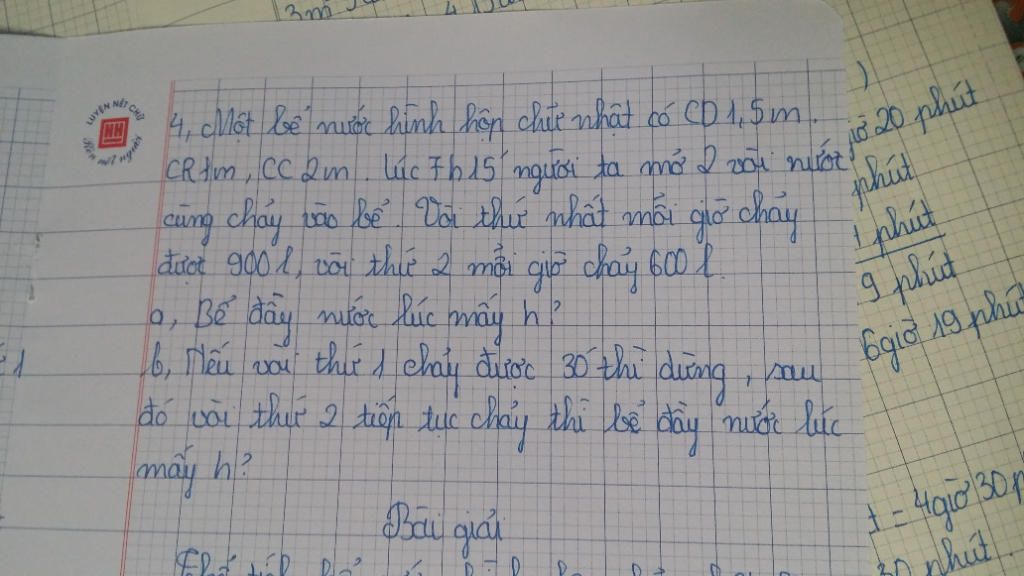 3m
LUYỆN NÉT CHỮ
HH
Rèn nết người
4, Một bể nước hình hộp chữ nhật có CD 1,5m.
CR 1m, CC 2m. lúc 7h15' người ta mở 2 vòi nước
cùng chảy vào bể. Vòi thứ nhất mỗi giờ chảy
được 900l, vòi thứ 2 mỗi giờ chảy 600l.
a, Bể đầy nước lúc mấy h?
b, Nếu vòi thứ 1 chảy được 30' thì dừng, sau
đó vòi thứ 2 tiếp tục chảy thì bể đầy nước lúc
mấy h?
Bài giải
)
giờ 20 phút
phút
1 phút
9 phút
6 giờ 19 phút
1
= 4giờ 30 p
30 phút